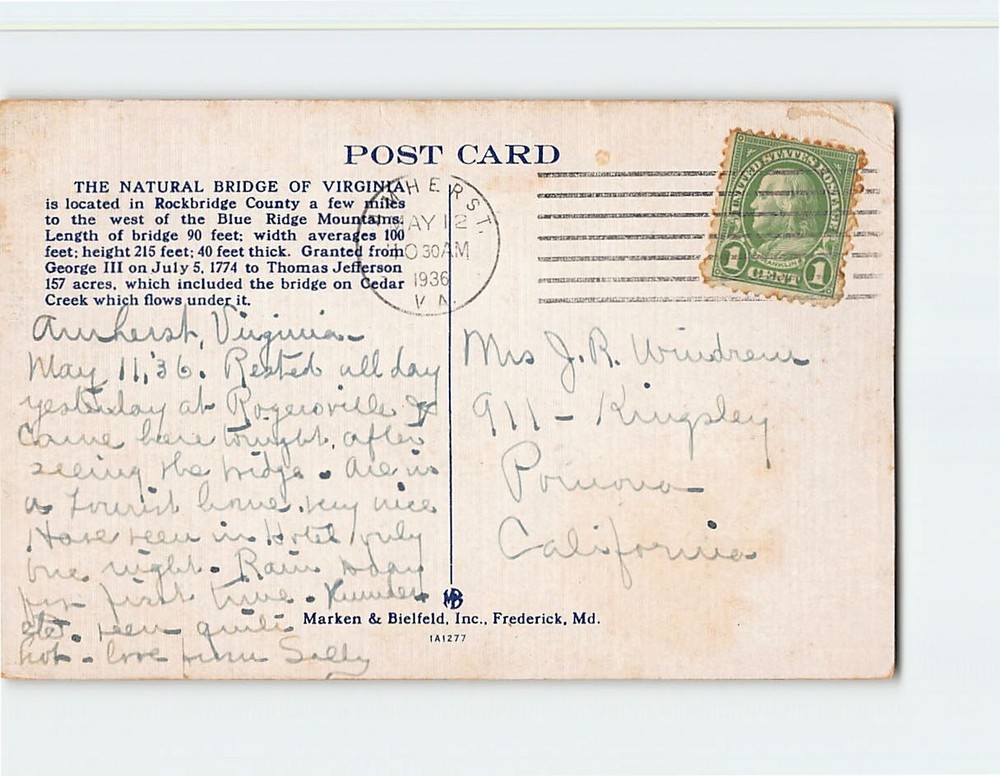 POST CARD
THE NATURAL BRIDGE OF VIRGINIA
is located in Rockbridge County a few miles
to the west of the Blue Ridge Mountains.
Length of bridge 90 feet; width averages 100
feet; height 215 feet; 40 feet thick. Granted from
George III on July 5, 1774 to Thomas Jefferson
157 acres, which included the bridge on Cedar
Creek which flows under it.
AMHERST.
MAY 12
10 30 AM
1936
VA.
UNITED STATES POSTAGE
FRANKLIN
1 CENT 1
Amherst, Virginia -
May 11, '36. Rested all day
yesterday at Rogersville &
Came here tonight, after
seeing the bridge. Are in
a tourist home, very nice
Have been in Hotel only
one night. Rain today
for first time.
been quite
hot - love from Sally
Mrs J. R. Windrem
911 - Kingsley
Pomona
California
MB
Marken & Bielfeld, Inc., Frederick, Md.
1A1277